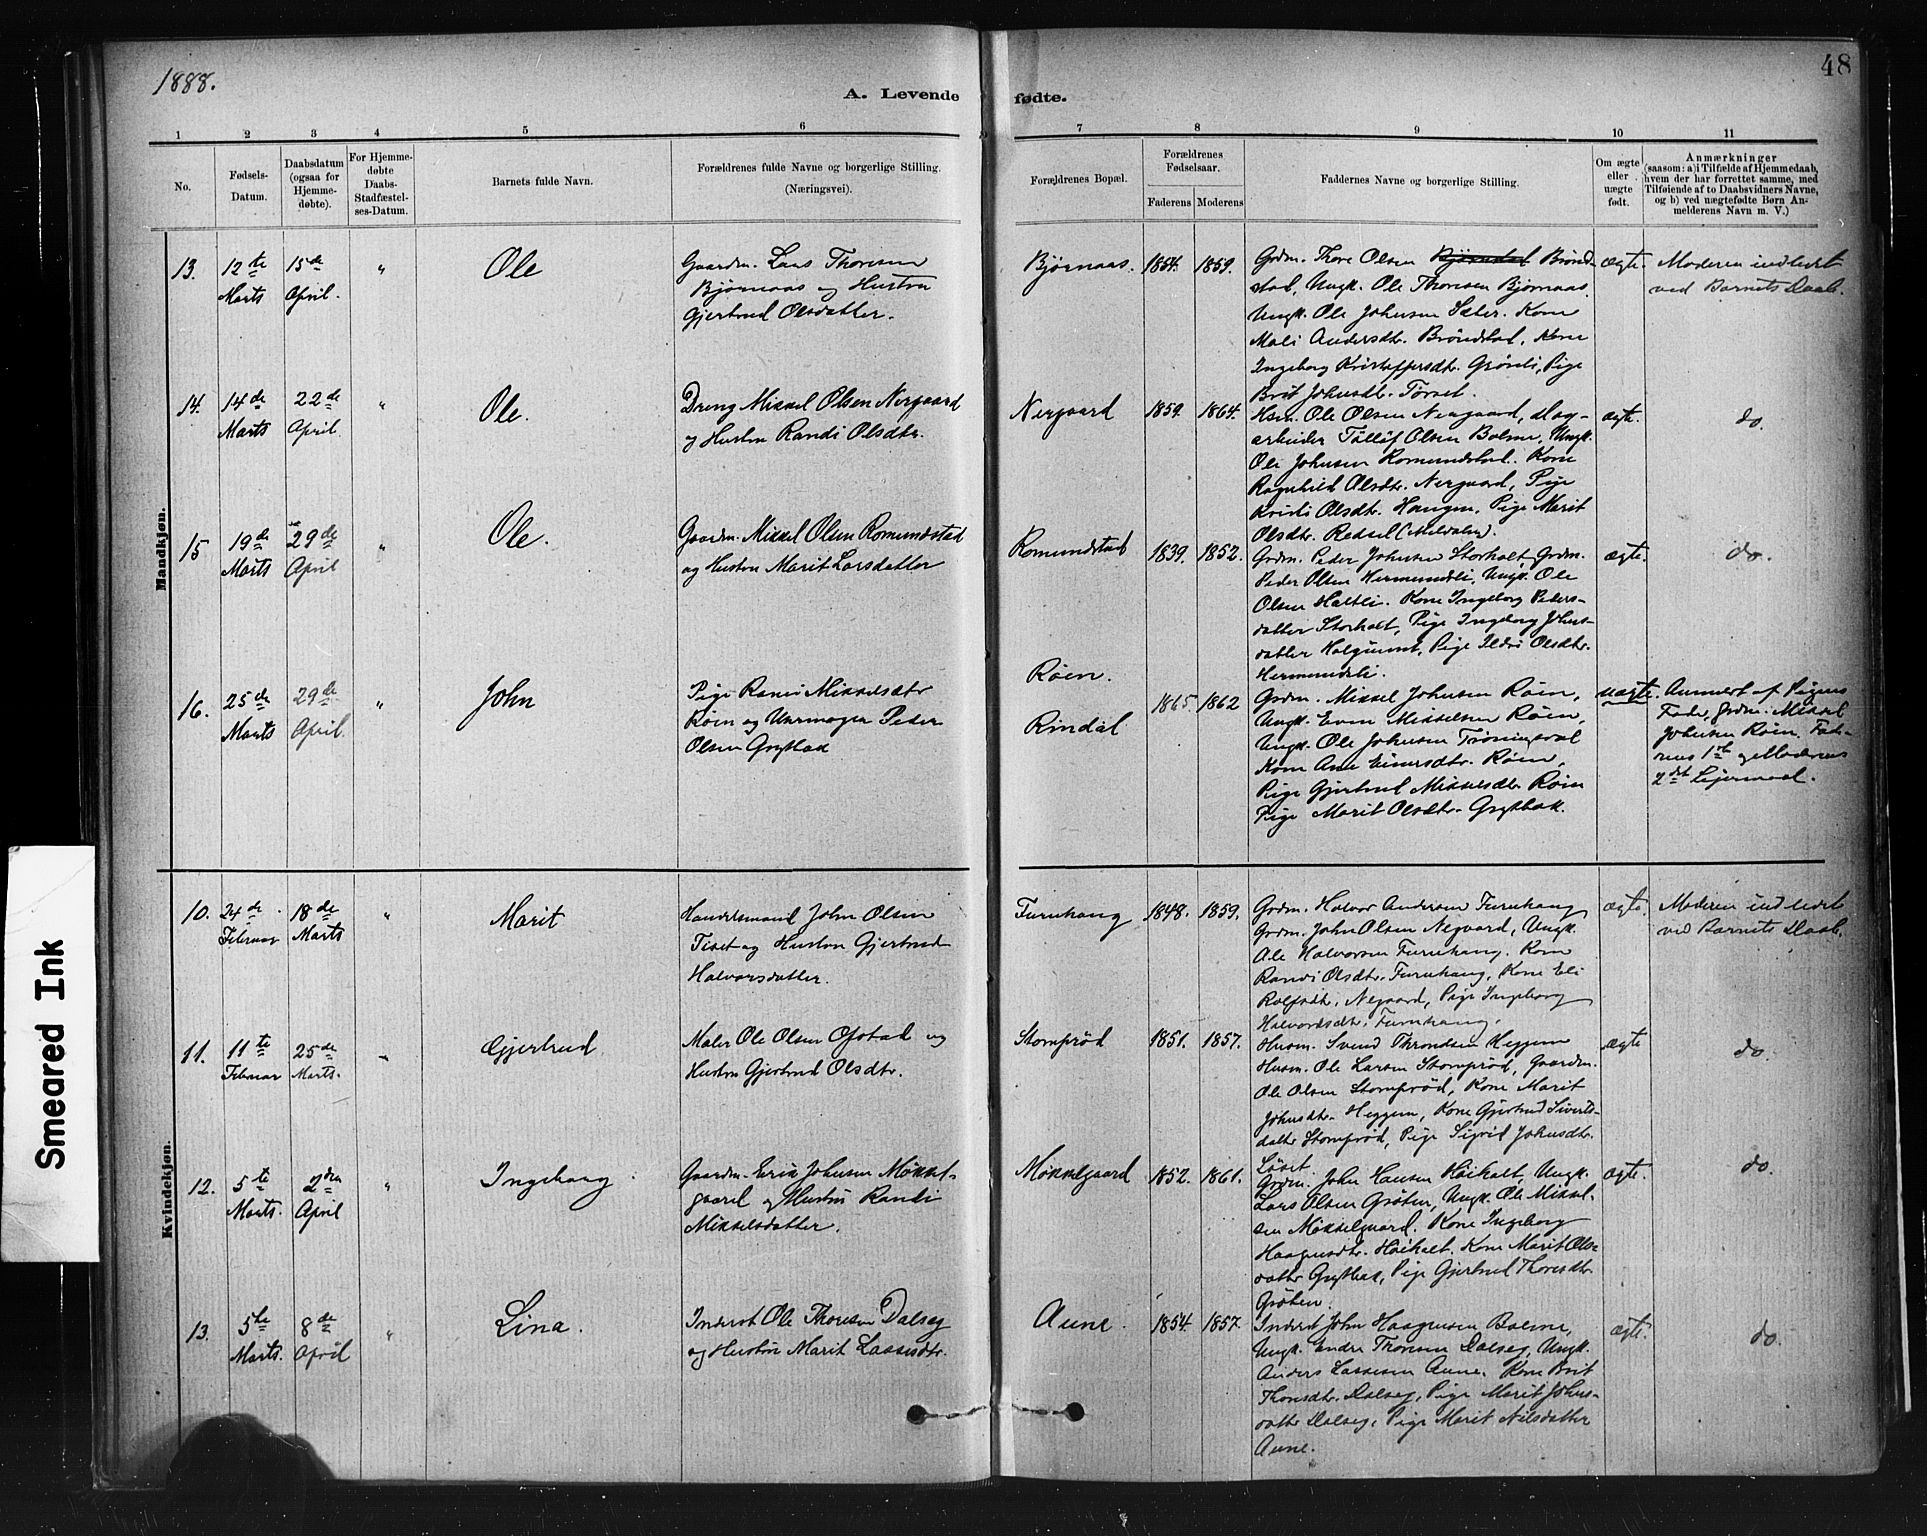 1888.
48
A. Levende fødte.
1 2 3 4 5 6 7 8 9 10 11
No.
Fødsels-
Datum.
Daabsdatum
(ogsaa for
Hjemme-
døbte).
For Hjemme-
døbte
Daabs-
Stadfæstel-
ses-Datum.
Barnets fulde Navn.
Forældrenes fulde Navne og borgerlige Stilling.
(Næringsvei).
Forældrenes Bopæl.
Forældrenes
Fødselsaar.
Faderens Moderens
Faddernes Navne og borgerlige Stilling.
Om ægte
eller
uægte
født.
Anmærkninger
(saasom: a) i Tilfælde af Hjemmedaab,
hvem der har forrettet samme, med
Tilføiende af to Daabsvidners Navne,
og b) ved uægtefødte Børn An-
melderens Navn m. V.)
Mandkjøn.
13.
12te
Marts
15de
April.
"
Ole
Gaardm. Lars Thoresen
Bjørnaas og Hustru
Gjertrud Olsdatter.
Bjørnaas.
1854. 1859.
Grdm. Thore Olsen Bjørnstad Brønd-
stad, Ungk. Ole Thoresen Bjørnaas
Ungk. Ole Johnsen Sæter. Kone
Mali Andersdtr. Brøndstad, Kone
Ingeborg Kristoffersdtr. Grønli, Pige
Brit Johnsdtr. Tørset.
ægte.
Moderen indledet
ved Barnets Daab.
14.
14de
Marts
22de
April.
"
Ole.
Dreng Mikkel Olsen Nergaard
og Hustru Randi Olsdtr.
Nergaard
1859. 1864.
Hsm. Ole Olsen Nergaard, Dag-
arbeider Tølløf Olsen Bolme, Ungk.
Ole Johnsen Romundstad. Kone
Ragnhild Olsdtr. Nergaard, Pige
Kristi Olsdtr. Haugen, Pige Marit
Olsdtr. Redsel (Meldalen).
ægte.
do.
15
19de
Marts
29de
April
"
Ole.
Gaardm. Mikkel Olsen Romundstad
og Hustru Marit Larsdatter
Romundstad
1839. 1852.
Grdm. Peder Johnsen Storholt, Grdm.
Peder Olsen Hermundsli, Ungk. Ole
Olsen Haltli. Kone Ingeborg Peders-
datter Storholt, Pige Ingeborg Johns-
datter Halgunset, Pige Ildri Olsdtr.
Hermundsli.
ægte.
do.
16.
25de
Marts
29de
April.
"
John
Pige Randi Mikkelsdtr
Røen og Urmager Peder
Olsen Grytbak
Røen.
Rindal
1865. 1862
Grdm. Mikkel Johnsen Røen,
Ungk. Even Mikkelsen Røen,
Ungk. Ole Johnsen Trøningsdal
Kone Ane Einersdtr. Røen,
Pige Gjertrud Mikkelsdtr. Røen
Pige Marit Olsdtr. Grytbak.
uægte.
Anmeldt af Pigens
Fader, Grdm. Mikkel
Johnsen Røen. Fad-
erens 1ste og Moderens
2det Leiermaal.
Kvindekjøn.
10.
24de
Februar
18de
Marts
"
Marit
Handelsmand John Olsen
Tiset og Hustru Gjertrud
Halvorsdatter.
Furuhaug
1848. 1859.
Grdm. Halvor Andersen Furuhaug
Grdm. John Olsen Negaard, Ungk.
Ole Halvorsen Furuhaug. Kone
Randi Olsdtr. Furuhaug, Kone Eli
Rolfsdtr. Negaard, Pige Ingeborg
Halvorsdtr. Furuhaug.
ægte.
Moderen indledet
ved Barnets Daab.
11.
11te
Februar
25de
Marts.
"
Gjertrud
Maler Ole Olsen Opstad og
Hustru Gjertrud Olsdtr.
Stomprød
1851. 1857.
Husm. Svend Throndsen Heggem
Husm. Ole Larsen Stomprød, Gaardm.
Ole Olsen Stomprød, Kone Marit
Johnsdtr. Heggem, Kone Gjertrud Siverts-
datter Stomprød, Pige Sigrid Johnsdtr.
Løset.
ægte
do.
12.
5te
Marts.
2den
April
"
Ingeborg
Gaardm. Erik Johnsen Møkkel-
gaard og Hustru Randi
Mikkelsdatter.
Møkkelgaard
1852. 1861.
Grdm. John Hansen Høiholt, Ungk.
Lars Olsen Grøten, Ungk. Ole Mikkel-
sen Møkkelgaard. Kone Ingeborg
Haagensdtr. Høiholt. Kone Marit Ols-
datter Grytbak, Pige Gjertrud Thoresdtr.
Grøten.
ægte.
do.
13.
5te
Marts.
8de
April
"
Lina.
Inderst Ole Thoresen Dalseg
og Hustru Marit Lassesdtr.
Aune.
1854. 1857.
Inderst John Haagensen Bolme,
Ungk. Endre Thoresen Dalseg, Ungk.
Anders Lassesen Aune. Kone Brit
Thoresdtr. Dalseg, Pige Marit Johns-
datter Dalseg, Pige Marit Nilsdatter
Aune.
ægte.
do.
Smeared Ink